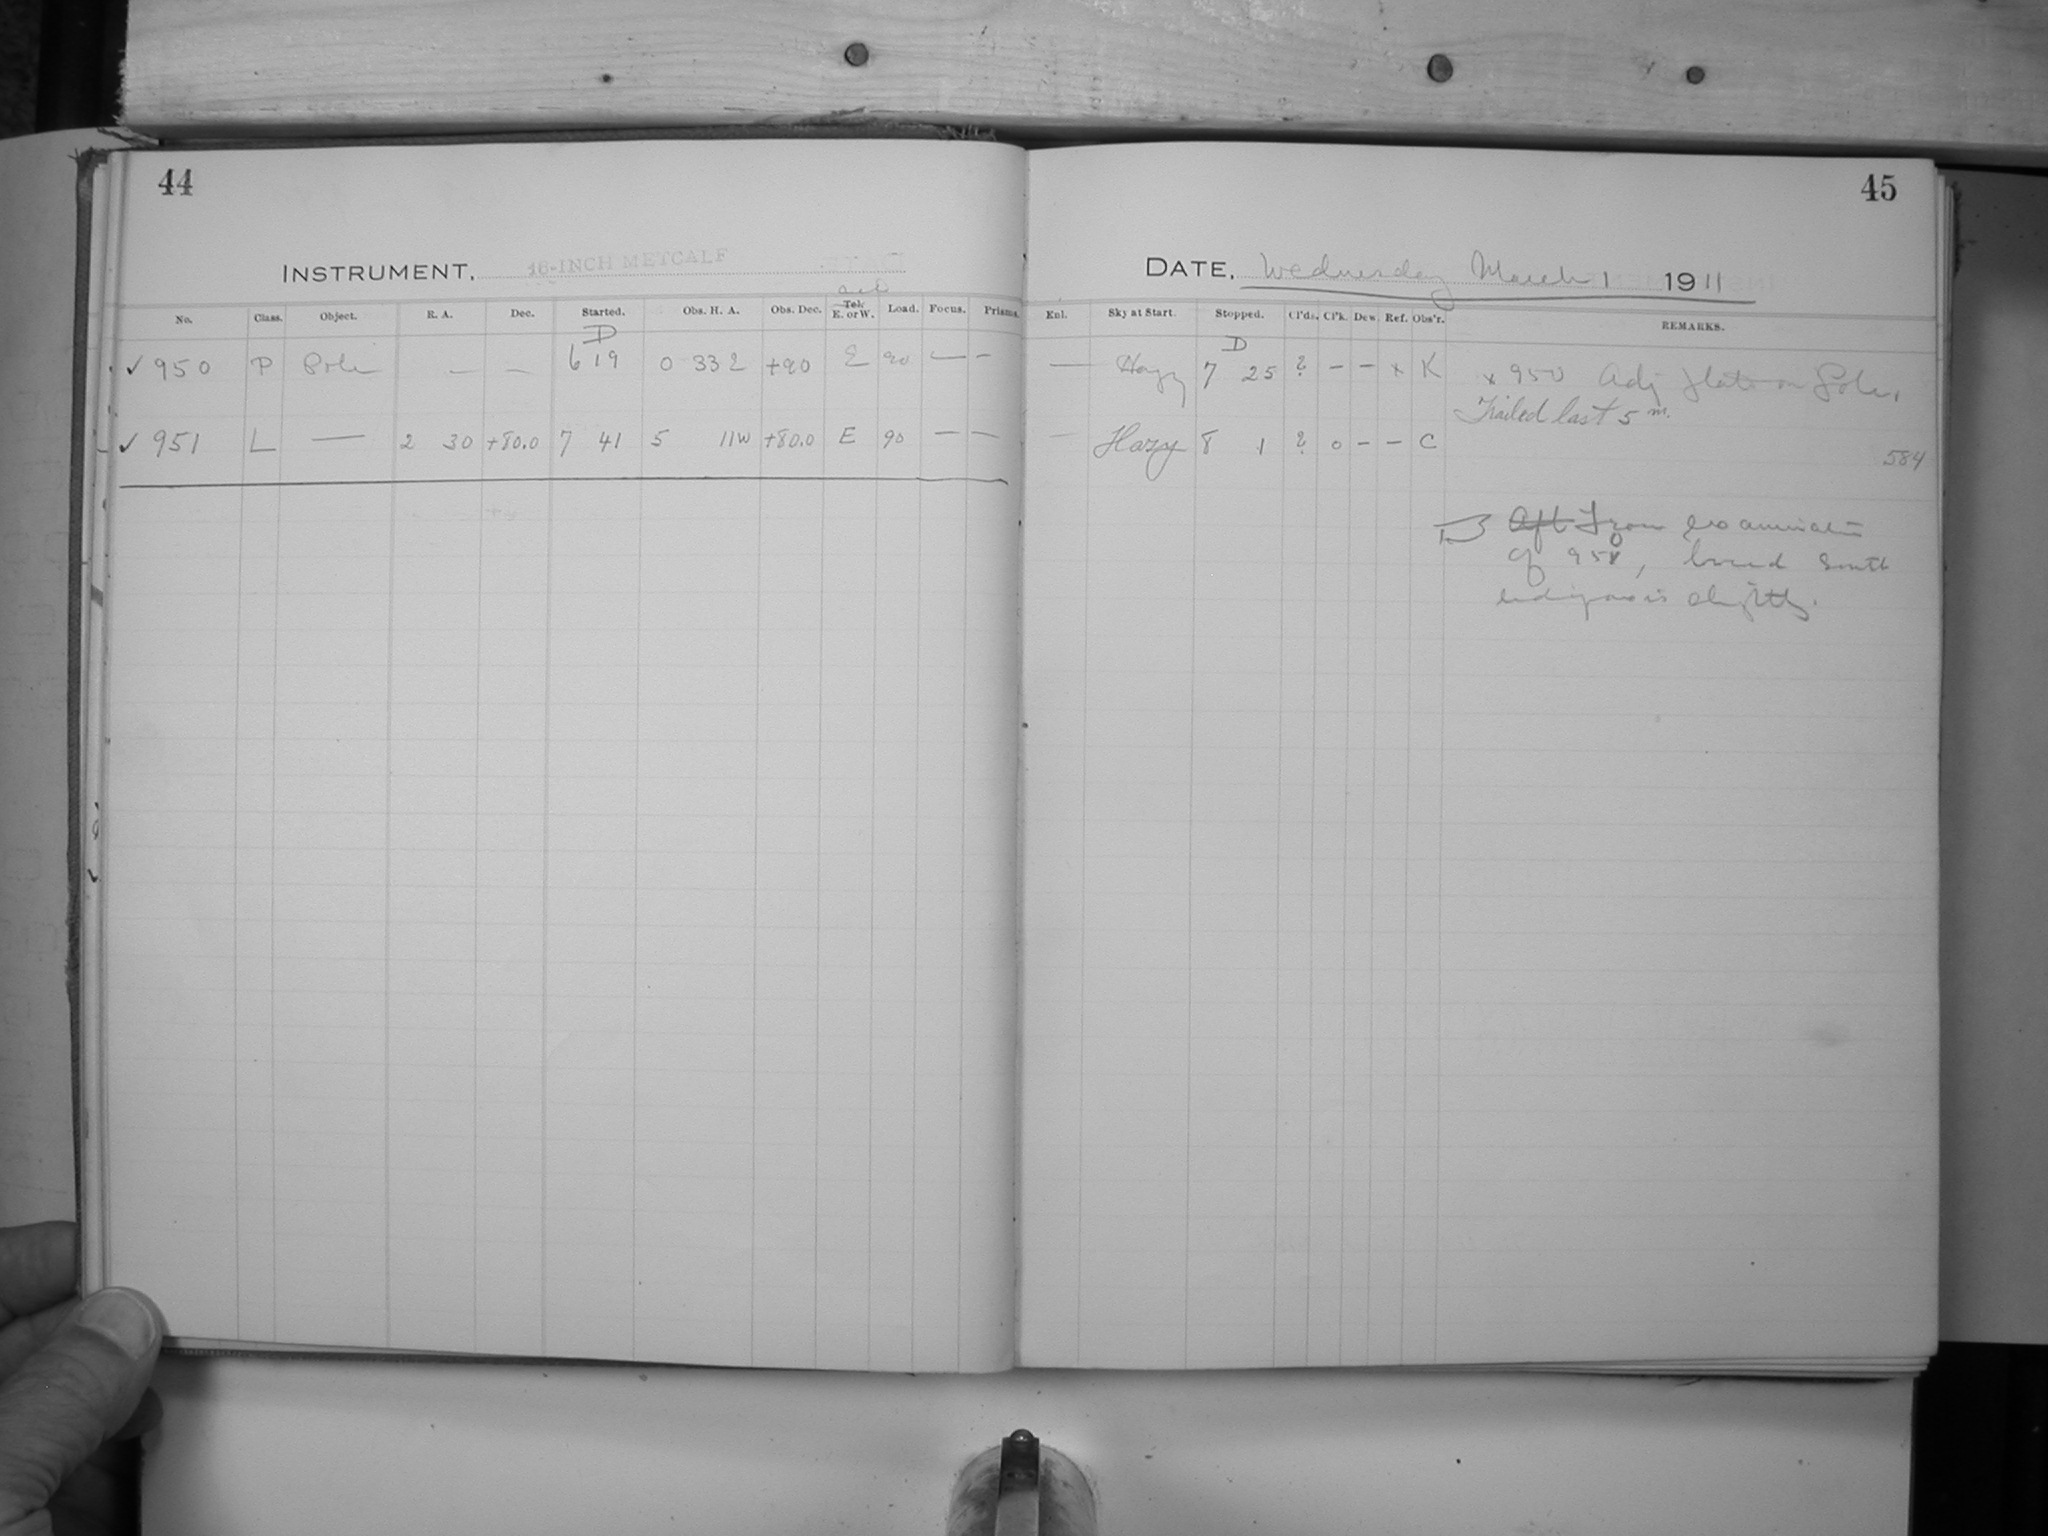 44
45
INSTRUMENT, 16-INCH METCALF
DATE, Wednesday March 1 1911
No. Class. Object. R. A. Dec. Started. Obs. H. A. Obs. Dec. Tel. E. or W. Load. Focus. Prisms. Enl. Sky at Start. Stopped. Cl'ds. Cl'k. Dew. Ref. Obs'r. REMARKS.
D D
✓ 950 P Pole — — 6 19 0 33 2 +90 E 90 — — — Hazy 7 25 ? – – x K x 950 Adj plate on Pole.
Trailed last 5 m.
✓ 951 L — 2 30 +80.0 7 41 5 11W +80.0 E 90 — — — Hazy 8 1 ? 0 – – C
584
Aft From examination
of 950, South
slightly.